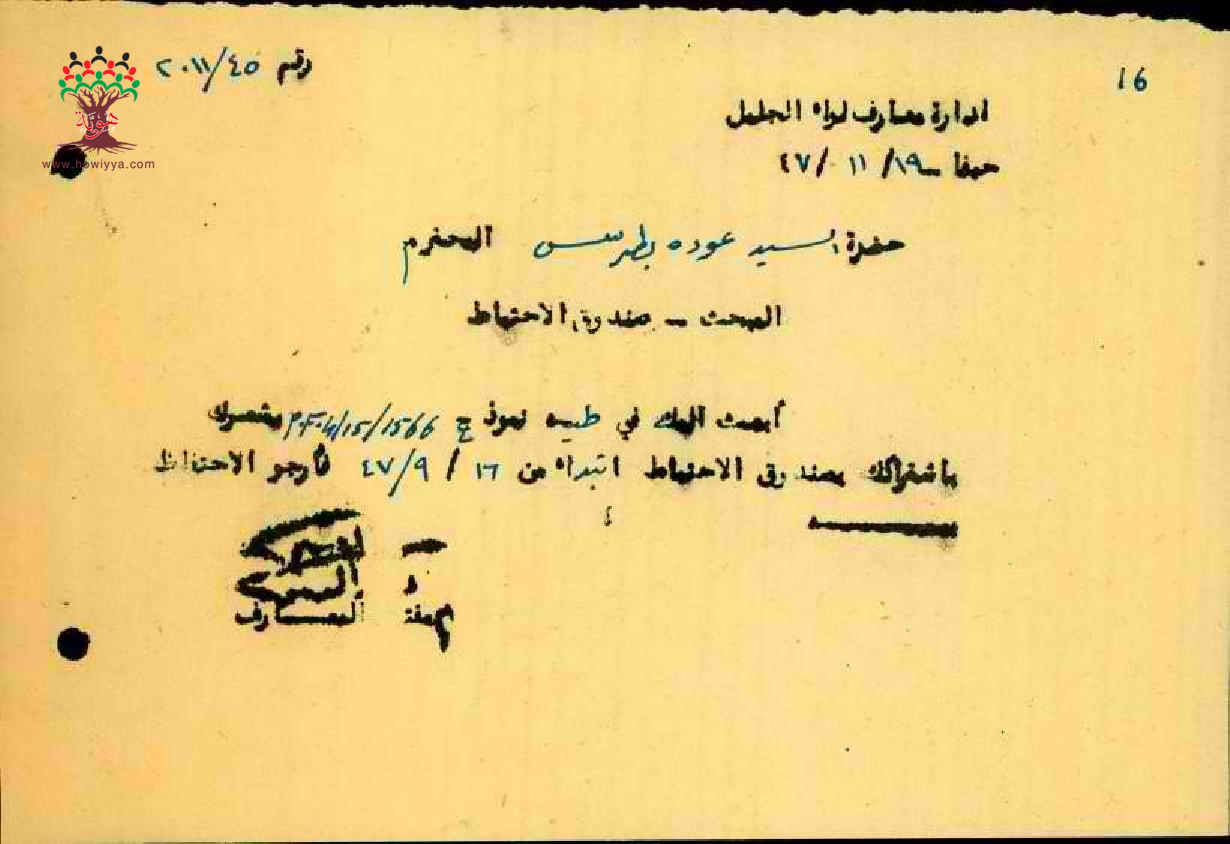 16
رقم ٢٠١١/٤٥
هوية
www.howiyya.com
ادارة معارف لواء الجليل
حيفا – ١٩/ ١١ /٤٧
حضرة السيد عوده بطرس المحترم
المبحث – صندوق الاحتياط
أبعث اليك في طيه نموذج P.F.4/15/1566 يشعرك
باشتراكك بصندوق الاحتياط ابتداء من ١٦ / ٩/ ٤٧ فأرجو الاحتفاظ
المعارف